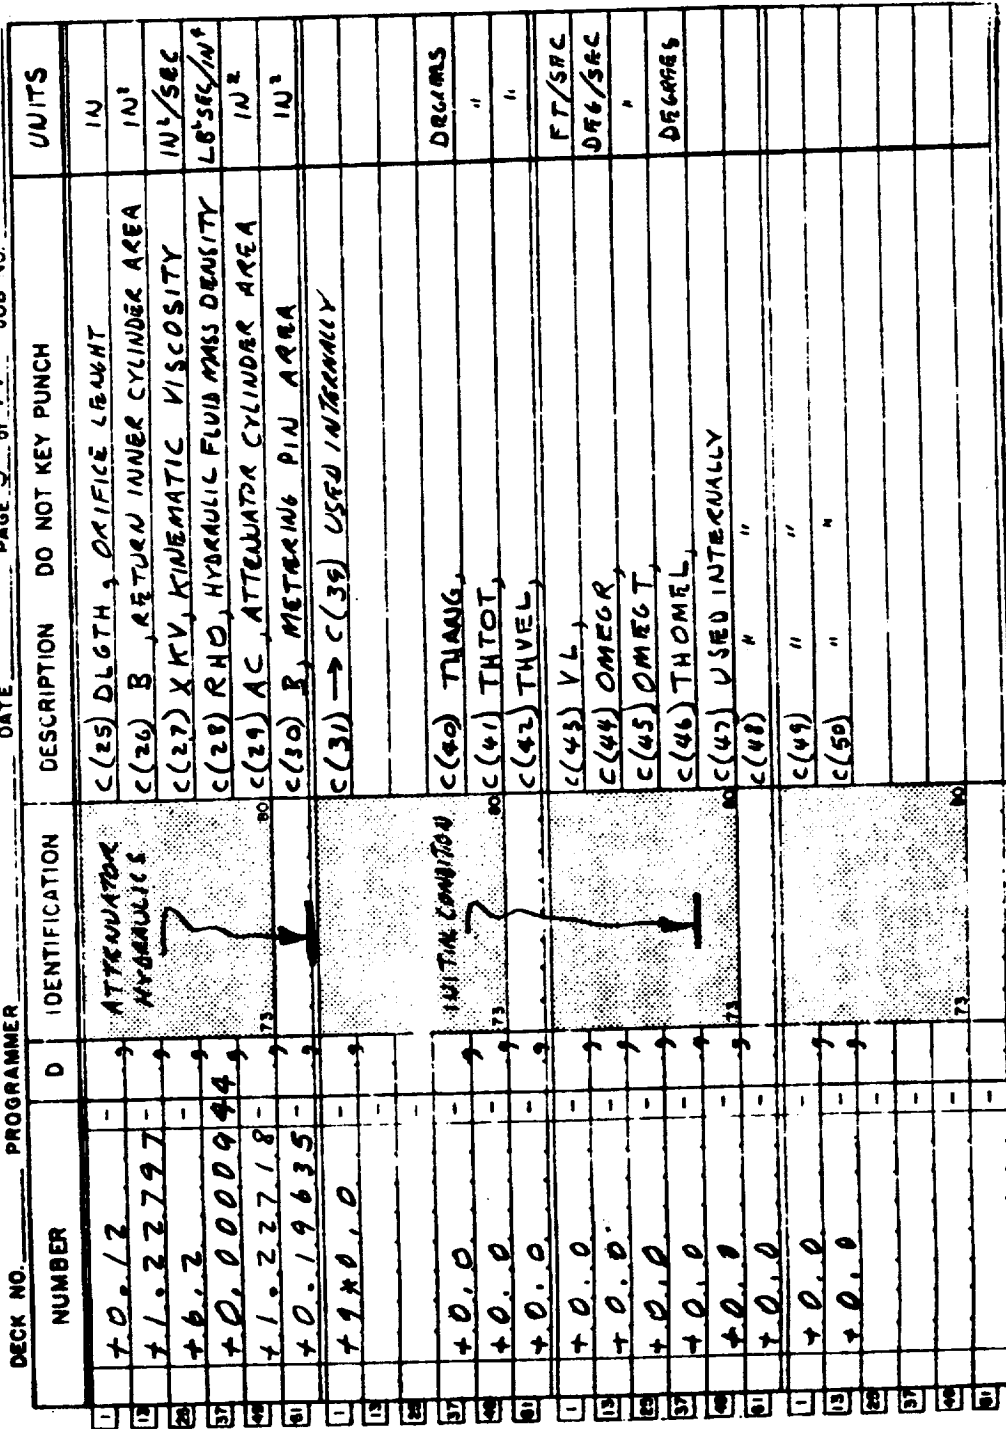 DECK NO. PROGRAMMER DATE PAGE OF
NUMBER D IDENTIFICATION DESCRIPTION DO NOT KEY PUNCH UNITS
1 +0.12 - , ATTENUATOR C(25) DLGTH, ORIFICE LENGHT IN
13 +1.22797 - , HYDRAULICS C(26) B, RETURN INNER CYLINDER AREA IN²
25 +6.2 - , C(27) XKV, KINEMATIC VISCOSITY IN²/SEC
37 +0.0000944 , C(28) RHO, HYDRAULIC FLUID MASS DENSITY LB²SEC/IN⁴
49 +1.22718 - , 73 80 C(29) AC, ATTENUATOR CYLINDER AREA IN²
61 +0.19635 - , C(30) B, METERING PIN AREA IN²
1 +9*0.0 - , C(31) → C(39) USED INTERNALLY
13 -
25 -
37 +0.0 - , INITIAL CONDITON C(40) THANG, DEGREES
49 +0.0 - , 73 80 C(41) THTOT, "
61 +0.0 - , C(42) THVEL, "
1 +0.0 - , C(43) VL, FT/SEC
13 +0.0 - , C(44) OMEGR, DEG/SEC
25 +0.0 - , C(45) OMEGT, "
37 +0.0 - , C(46) THOMEL, DEGREES
49 +0.0 - , 73 80 C(47) USED INTERNALLY
61 +0.0 - , C(48) " "
1 +0.0 - , C(49) " "
13 +0.0 - , C(50) " "
25 -
37 -
49 - 73 80
61 -